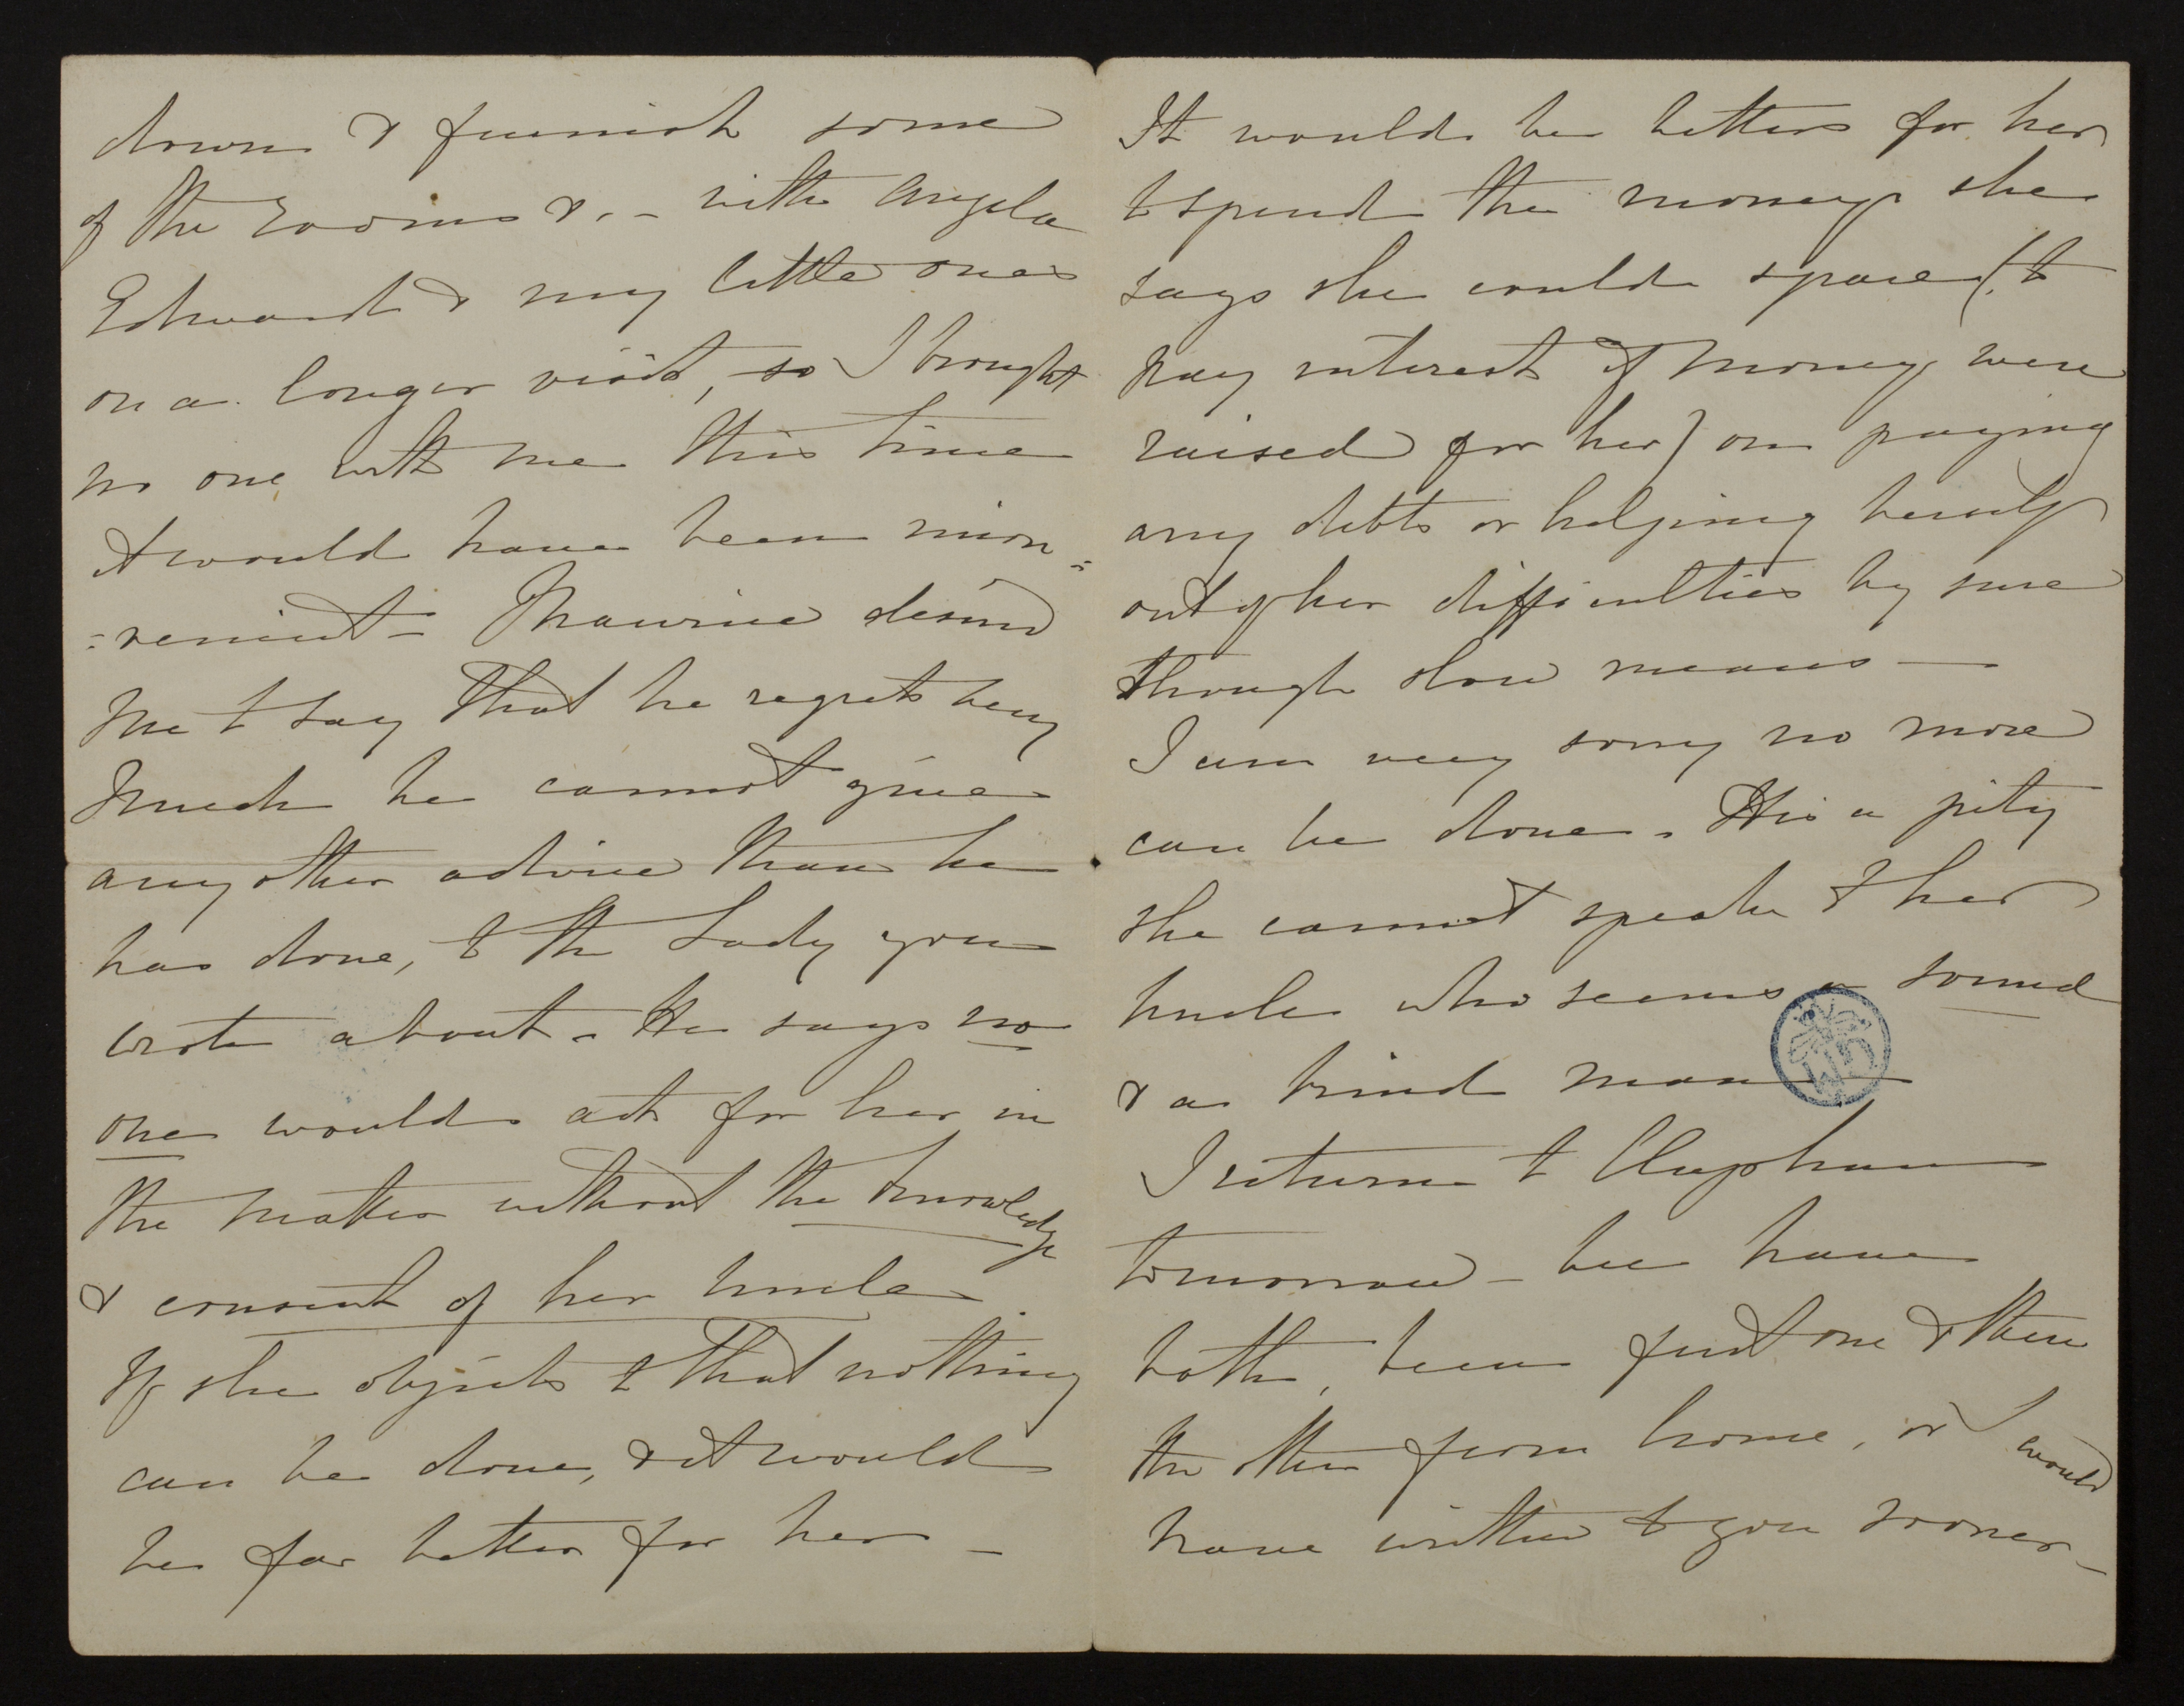 down & furnish some
of the rooms &. - with Angela
Edward & my little ones
on a longer visit, so I brought
no one with me this time
it would have been incon=
=venient - Maurice desired
me to say that he regrets very
much he cannot give
any other advice than he
has done, to the Lady you
wrote about. He says no
one would act for her in
the matter without the knowledge
& consent of her uncle.
If she objects to that nothing
can be done, & it would
be far better for her -
It would be better for her
to spend the money she
says she could spare (to
pay interest if money were
raised for her) on paying
any debts or helping herself
out of her difficulties by sure
though slow means -
I am very sorry no more
can be done. It is a pity
she cannot speak to her
uncle who seems a sound
& a kind man -
I return to Clapham
tomorrow - we have
both, been first one & then
the other from home, or I would
have written to you sooner -